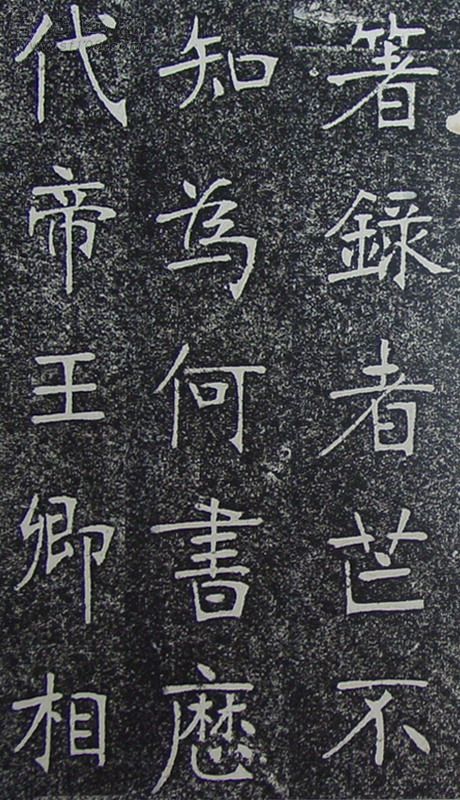 箸錄者芒不
知為何書歴
代帝王卿相